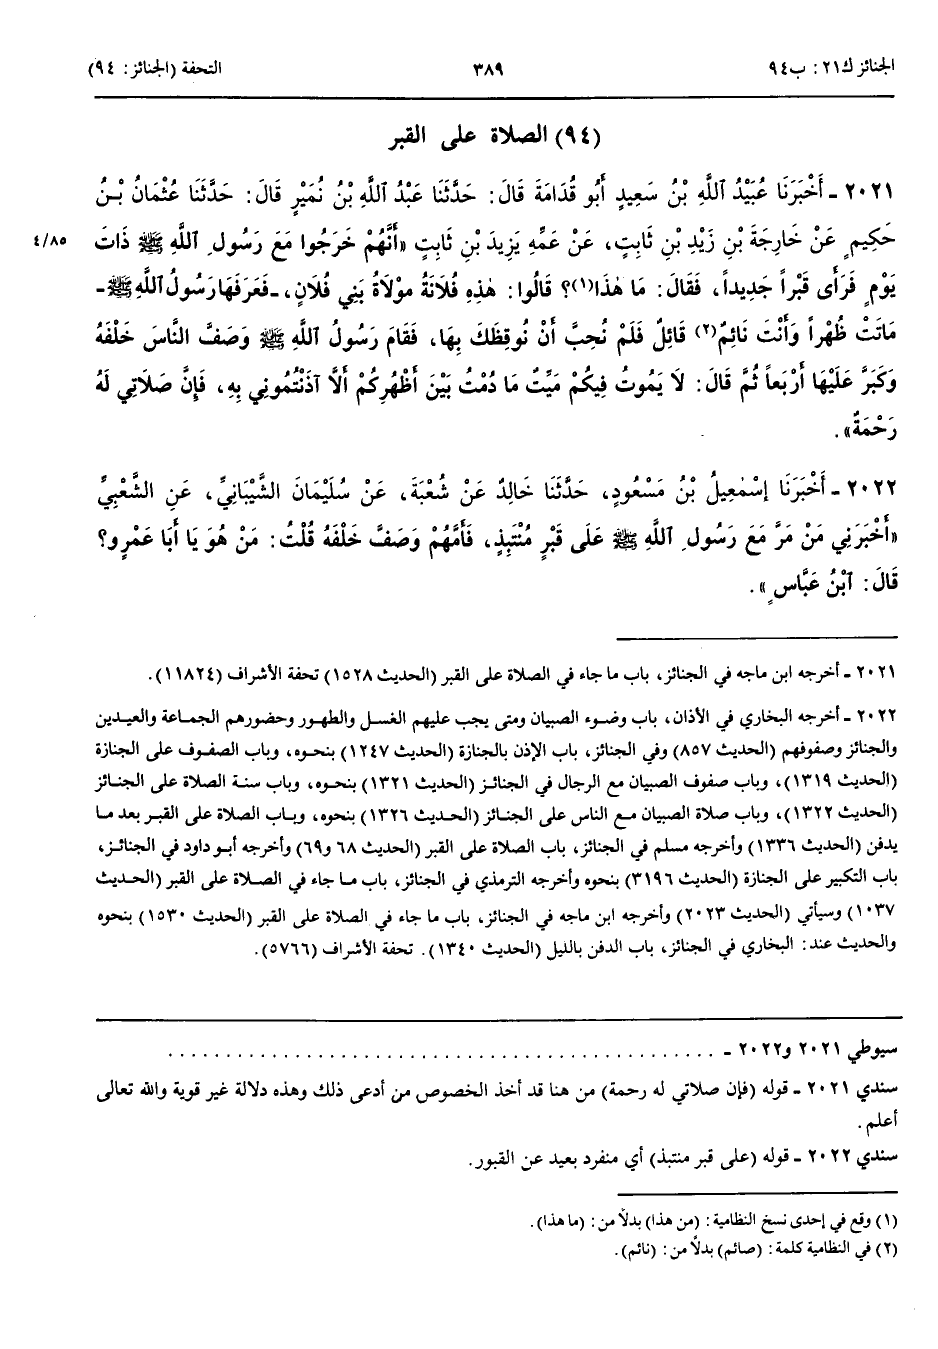 الجنائز ك٢١: ب٩٤ ٣٨٩ التحفة (الجنائز: ٩٤)
(٩٤) الصلاة على القبر
٢٠٢١ ـ أَخْبَرَنَا عُبَيْدُ ٱللَّهِ بْنُ سَعِيدٍ أَبُو قُدَامَةَ قَالَ: حَدَّثَنَا عَبْدُ ٱللَّهِ بْنُ نُمَيْرٍ قَالَ: حَدَّثَنَا عُثْمَانُ بْنُ
حَكِيمٍ عَنْ خَارِجَةَ بْنِ زَيْدِ بْنِ ثَابِتٍ، عَنْ عَمِّهِ يَزِيدَ بْنِ ثَابِتٍ «أَنَّهُمْ خَرَجُوا مَعَ رَسُولِ ٱللَّهِ ﷺ ذَاتَ ٤/٨٥
يَوْمٍ فَرَأَى قَبْراً جَدِيداً، فَقَالَ: مَا هٰذَا(١)؟ قَالُوا: هٰذِهِ فُلَانَةُ مَوْلَاةُ بَنِي فُلَانٍ، ـفَعَرَفَهَا رَسُولُ ٱللَّهِ ﷺـ
مَاتَتْ ظُهْراً وَأَنْتَ نَائِمٌ(٢) قَائِلٌ فَلَمْ نُحِبَّ أَنْ نُوقِظَكَ بِهَا، فَقَامَ رَسُولُ ٱللَّهِ ﷺ وَصَفَّ النَّاسَ خَلْفَهُ
وَكَبَّرَ عَلَيْهَا أَرْبَعاً ثُمَّ قَالَ: لَا يَمُوتُ فِيكُمْ مَيِّتٌ مَا دُمْتُ بَيْنَ أَظْهُرِكُمْ أَلَّا آذَنْتُمُونِي بِهِ، فَإِنَّ صَلَاتِي لَهُ
رَحْمَةٌ».
٢٠٢٢ ـ أَخْبَرَنَا إِسْمٰعِيلُ بْنُ مَسْعُودٍ، حَدَّثَنَا خَالِدٌ عَنْ شُعْبَةَ، عَنْ سُلَيْمَانَ الشَّيْبَانِيِّ، عَنِ الشَّعْبِيِّ
«أَخْبَرَنِي مَنْ مَرَّ مَعَ رَسُولِ ٱللَّهِ ﷺ عَلَى قَبْرٍ مُنْتَبِذٍ، فَأَمَّهُمْ وَصَفَّ خَلْفَهُ قُلْتُ: مَنْ هُوَ يَا أَبَا عَمْرٍو؟
قَالَ: ٱبْنُ عَبَّاسٍ».
٢٠٢١ ـ أخرجه ابن ماجه في الجنائز، باب ما جاء في الصلاة على القبر (الحديث ١٥٢٨) تحفة الأشراف (١١٨٢٤).
٢٠٢٢ ـ أخرجه البخاري في الأذان، باب وضوء الصبيان ومتى يجب عليهم الغسل والطهور وحضورهم الجماعة والعيدين
والجنائز وصفوفهم (الحديث ٨٥٧) وفي الجنائز، باب الإذن بالجنازة (الحديث ١٢٤٧) بنحوه، وباب الصفوف على الجنازة
(الحديث ١٣١٩)، وباب صفوف الصبيان مع الرجال في الجنائز (الحديث ١٣٢١) بنحوه، وباب سنة الصلاة على الجنائز
(الحديث ١٣٢٢)، وباب صلاة الصبيان مع الناس على الجنائز (الحديث ١٣٢٦) بنحوه، وباب الصلاة على القبر بعد ما
يدفن (الحديث ١٣٣٦) وأخرجه مسلم في الجنائز، باب الصلاة على القبر (الحديث ٦٨ و٦٩) وأخرجه أبو داود في الجنائز،
باب التكبير على الجنازة (الحديث ٣١٩٦) بنحوه وأخرجه الترمذي في الجنائز، باب ما جاء في الصلاة على القبر (الحديث
١٠٣٧) وسيأتي (الحديث ٢٠٢٣) وأخرجه ابن ماجه في الجنائز، باب ما جاء في الصلاة على القبر (الحديث ١٥٣٠) بنحوه
والحديث عند: البخاري في الجنائز، باب الدفن بالليل (الحديث ١٣٤٠). تحفة الأشراف (٥٧٦٦).
سيوطي ٢٠٢١ و٢٠٢٢ ـ ................................................
سندي ٢٠٢١ ـ قوله (فإن صلاتي له رحمة) من هنا قد أخذ الخصوص من أدعى ذلك وهذه دلالة غير قوية والله تعالى
أعلم.
سندي ٢٠٢٢ ـ قوله (على قبر منتبذ) أي منفرد بعيد عن القبور.
(١) وقع في إحدى نسخ النظامية: (من هذا) بدلاً من: (ما هذا).
(٢) في النظامية كلمة: (صائم) بدلاً من: (نائم).